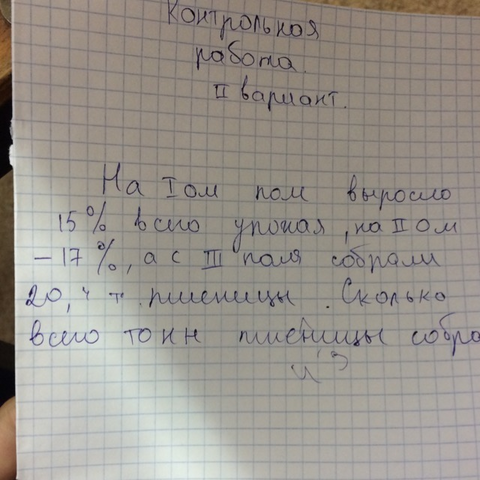 Контрольная
работа.
II вариант.
На I ом пом выросло
15% всего урожая, на II ом
– 17%, а с III поля собрали
20,4 т. пшеницы. Сколько
всего тонн пшеницы собра
из